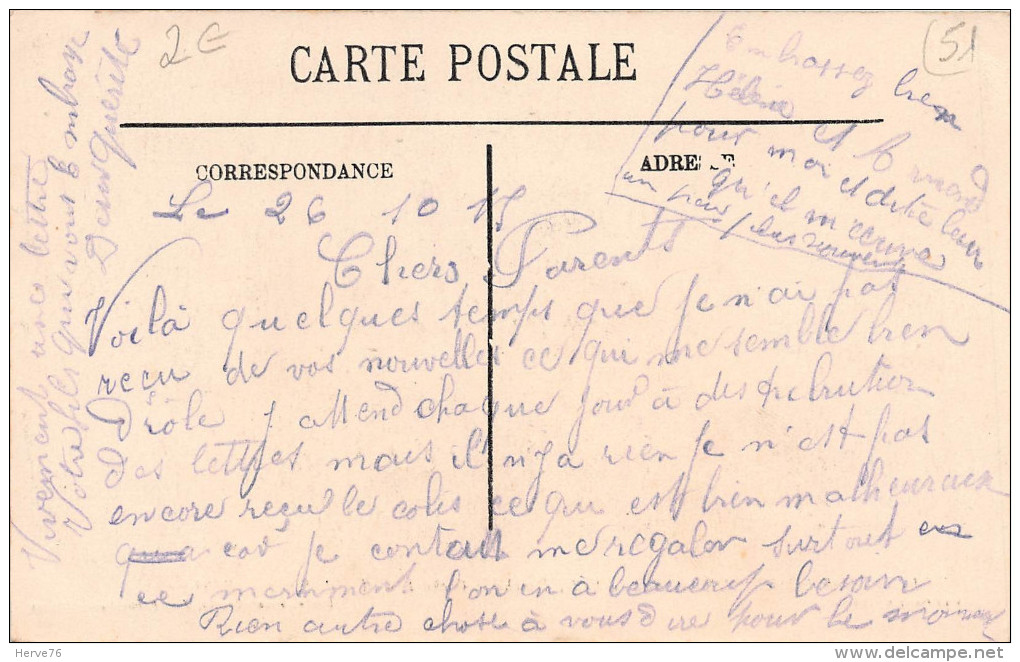 2€
(51)
CARTE POSTALE
CORRESPONDANCE
ADRESSE
Le 26 10 15
Chers Parents
Voilà quelques temps que je n'ai pas
reçu de vos nouvelles ce qui me semble bien
Drôle j attend chaque jour à
des lettres mais il n'y a rien Je n'est pas
encore reçu le colis ce qui est bien malheureux
car je contait me regaler surtout en
ce marnment l'on en à beaucoup besoin
Rien autre chose à vous dire pour le moment
Vivement une lettre
Votre fils qui vous Embrasse
Embrassez bien
Hélène et
pour moi et dite leur
qu'il m'écrive
un peux plus souvent
Herve76
www.delcampe.net